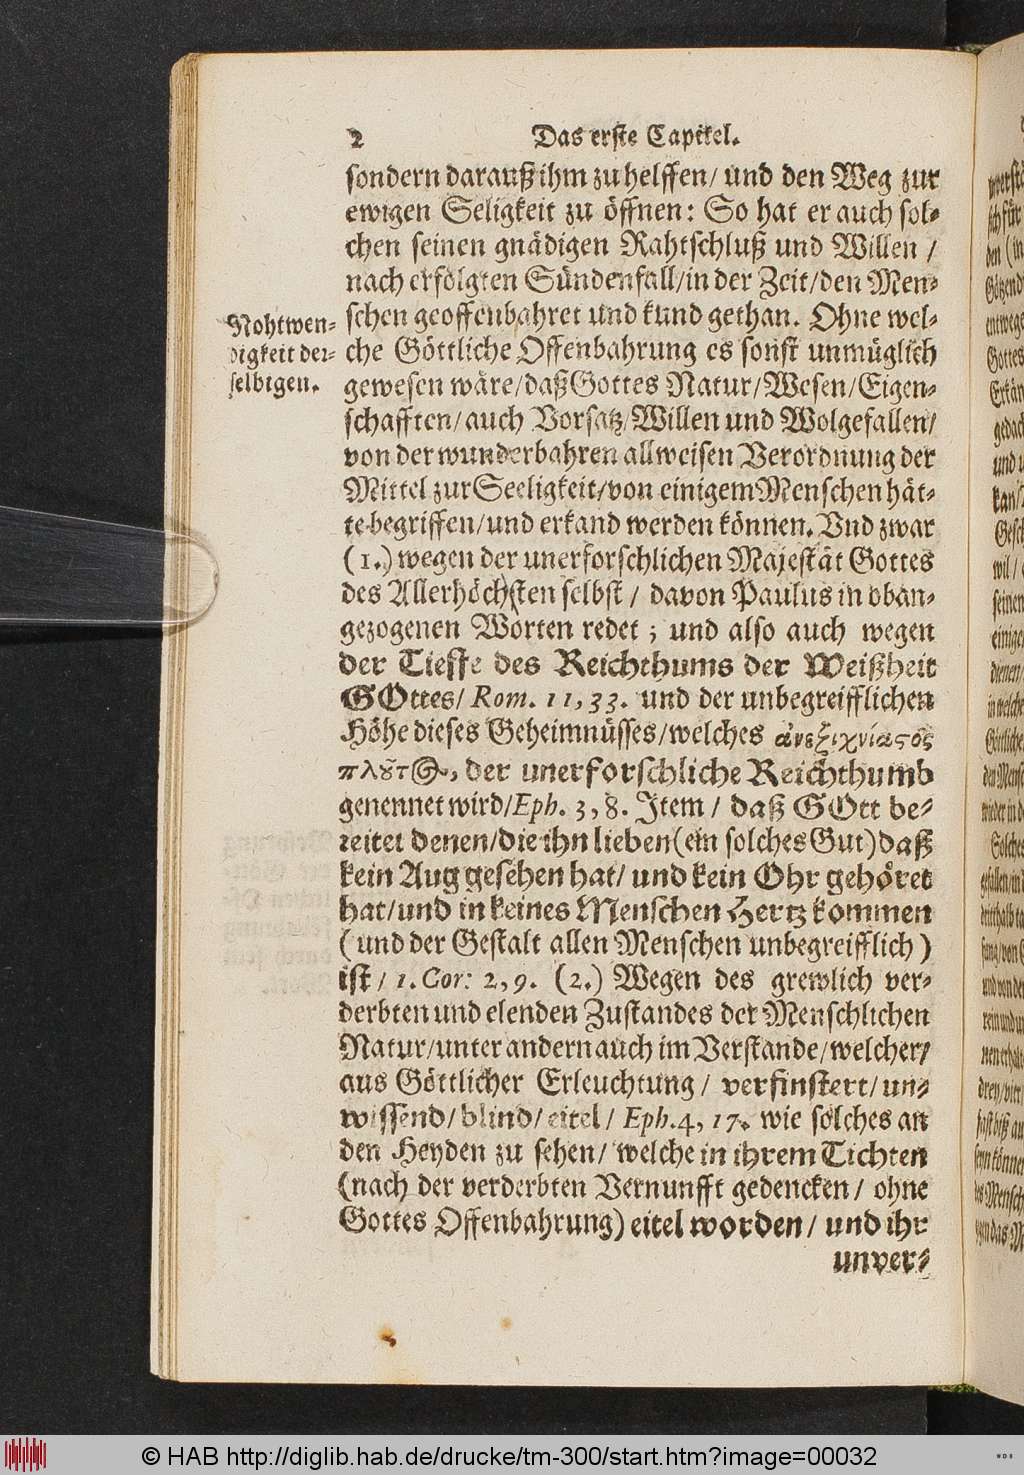 2 Das erste Capitel.
sondern darauß ihm zu helffen/ und den Weg zur
ewigen Seligkeit zu öffnen: So hat er auch sol-
chen seinen gnädigen Rahtschluß und Willen /
nach erfolgten Sündenfall/in der Zeit/den Men-
schen geoffenbahret und kund gethan. Ohne wel-
che Göttliche Offenbahrung es sonst unmüglich
gewesen wäre/daß Gottes Natur/Wesen/Eigen-
schafften/auch Vorsatz/Willen und Wolgefallen/
von der wunderbahren allweisen Verordnung der
Mittel zur Seeligkeit/von einigem Menschen hät-
te begriffen/und erkand werden können. Vnd zwar
(1.) wegen der unerforschlichen Majestät Gottes
des Allerhöchsten selbst / davon Paulus in oban-
gezogenen Worten redet ; und also auch wegen
der Tieffe des Reichthums der Weißheit
GOttes/ Rom. 11, 33. und der unbegreifflichen
Höhe dieses Geheimnüsses/welches ἀνεξιχνίαςος
πλοῦτος, der unerforschliche Reichthumb
genennet wird/Eph. 3, 8. Item / daß GOtt be-
reitet denen/die ihn lieben (ein solches Gut) daß
kein Aug gesehen hat/ und kein Ohr gehöret
hat/und in keines Menschen Hertz kommen
(und der Gestalt allen Menschen unbegreifflich)
ist / 1. Cor: 2, 9. (2.) Wegen des grewlich ver-
derbten und elenden Zustandes der Menschlichen
Natur/unter andern auch im Verstande/welcher/
aus Göttlicher Erleuchtung / verfinstert/un-
wissend/blind/eitel / Eph. 4, 17. wie solches an
den Heyden zu sehen/ welche in ihrem Tichten
(nach der verderbten Vernunfft gedencken / ohne
Gottes Offenbahrung) eitel worden/ und ihr
unver-
Nohtwen-
digkeit der-
selbigen.
© HAB http://diglib.hab.de/drucke/tm-300/start.htm?image=00032